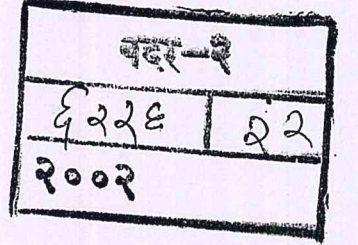 वदर-१
६२२६ | २२
२००२